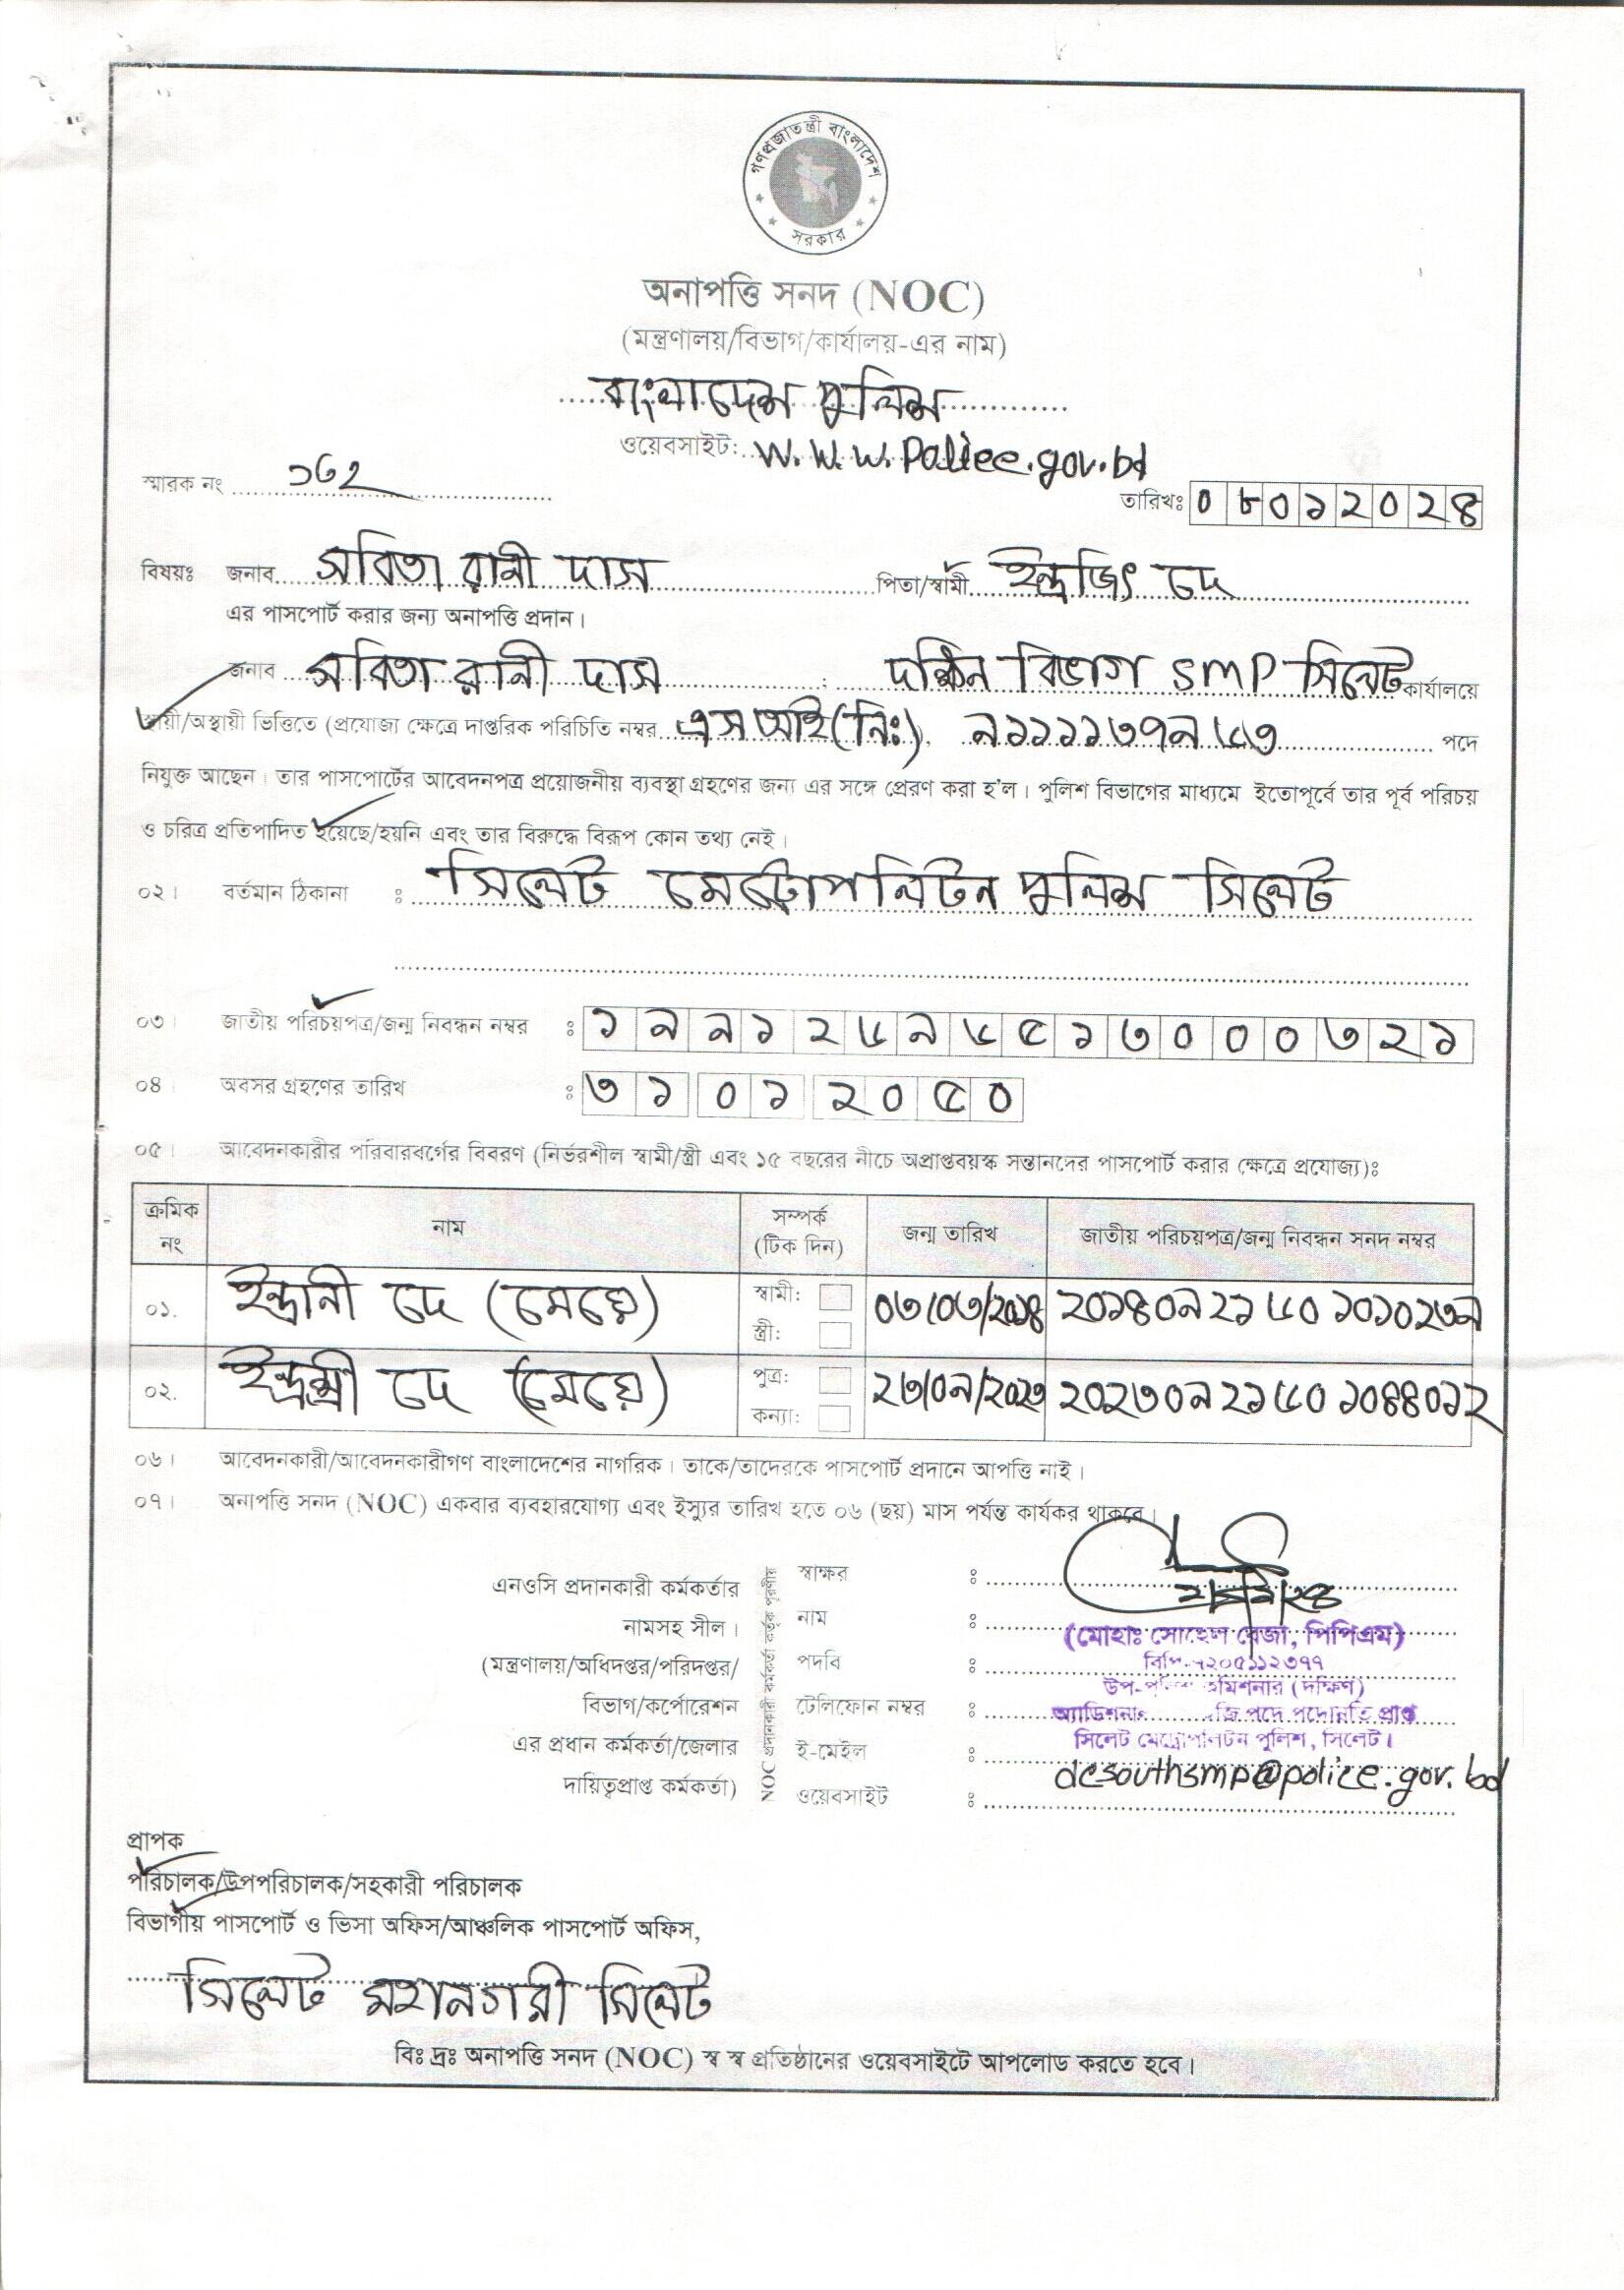 গণপ্রজাতন্ত্রী বাংলাদেশ
সরকার
অনাপত্তি সনদ (NOC)
(মন্ত্রণালয়/বিভাগ/কার্যালয়-এর নাম)
বাংলাদেশ পুলিশ
ওয়েবসাইট: w.w.w.police.gov.bd
স্মারক নং ১৬২
তারিখঃ ০৮০১২০২৪
বিষয়ঃ জনাব সবিতা রানী দাস পিতা/স্বামী ইন্দ্রজিৎ দে
এর পাসপোর্ট করার জন্য অনাপত্তি প্রদান।
জনাব সবিতা রানী দাস : দক্ষিন বিভাগ SMP সিলেট কার্যালয়ে
স্থায়ী/অস্থায়ী ভিত্তিতে (প্রযোজ্য ক্ষেত্রে দাপ্তরিক পরিচিতি নম্বর এস আই(নিঃ), পদে
নিযুক্ত আছেন। তার পাসপোর্টের আবেদনপত্র প্রয়োজনীয় ব্যবস্থা গ্রহণের জন্য এর সঙ্গে প্রেরণ করা হ'ল। পুলিশ বিভাগের মাধ্যমে ইতোপূর্বে তার পূর্ব পরিচয়
ও চরিত্র প্রতিপাদিত হয়েছে/হয়নি এবং তার বিরুদ্ধে বিরূপ কোন তথ্য নেই।
০২। বর্তমান ঠিকানা : সিলেট মেট্রোপলিটন পুলিশ সিলেট
০৩। জাতীয় পরিচয়পত্র/জন্ম নিবন্ধন নম্বর :
০৪। অবসর গ্রহণের তারিখ : ৩১০১২০৫০
০৫। আবেদনকারীর পরিবারবর্গের বিবরণ (নির্ভরশীল স্বামী/স্ত্রী এবং ১৫ বছরের নীচে অপ্রাপ্তবয়স্ক সন্তানদের পাসপোর্ট করার ক্ষেত্রে প্রযোজ্য)ঃ
ক্রমিক নং নাম সম্পর্ক (টিক দিন) জন্ম তারিখ জাতীয় পরিচয়পত্র/জন্ম নিবন্ধন সনদ নম্বর
০১. ইন্দ্রানী দে (মেয়ে) স্বামী: স্ত্রী:
০২. ইন্দ্রশ্রী দে (মেয়ে) পুত্র: কন্যা:
০৬। আবেদনকারী/আবেদনকারীগণ বাংলাদেশের নাগরিক। তাকে/তাদেরকে পাসপোর্ট প্রদানে আপত্তি নাই।
০৭। অনাপত্তি সনদ (NOC) একবার ব্যবহারযোগ্য এবং ইস্যুর তারিখ হতে ০৬ (ছয়) মাস পর্যন্ত কার্যকর থাকবে।
এনওসি প্রদানকারী কর্মকর্তার
নামসহ সীল।
(মন্ত্রণালয়/অধিদপ্তর/পরিদপ্তর/
বিভাগ/কর্পোরেশন
এর প্রধান কর্মকর্তা/জেলার
দায়িত্বপ্রাপ্ত কর্মকর্তা)
NOC প্রদানকারী কর্মকর্তা কর্তৃক পূরণীয়
স্বাক্ষর :
নাম : (মোহাঃ সোহেল রেজা, পিপিএম)
পদবি :
উপ-পুলিশ কমিশনার (দক্ষিণ)
টেলিফোন নম্বর : পদে পদোন্নতি প্রাপ্ত
সিলেট মেট্রোপলিটন পুলিশ, সিলেট।
ই-মেইল : dcsouthsmp@police.gov.bd
ওয়েবসাইট :
প্রাপক
পরিচালক/উপপরিচালক/সহকারী পরিচালক
বিভাগীয় পাসপোর্ট ও ভিসা অফিস/আঞ্চলিক পাসপোর্ট অফিস,
সিলেট মহানগরী সিলেট
বিঃ দ্রঃ অনাপত্তি সনদ (NOC) স্ব স্ব প্রতিষ্ঠানের ওয়েবসাইটে আপলোড করতে হবে।